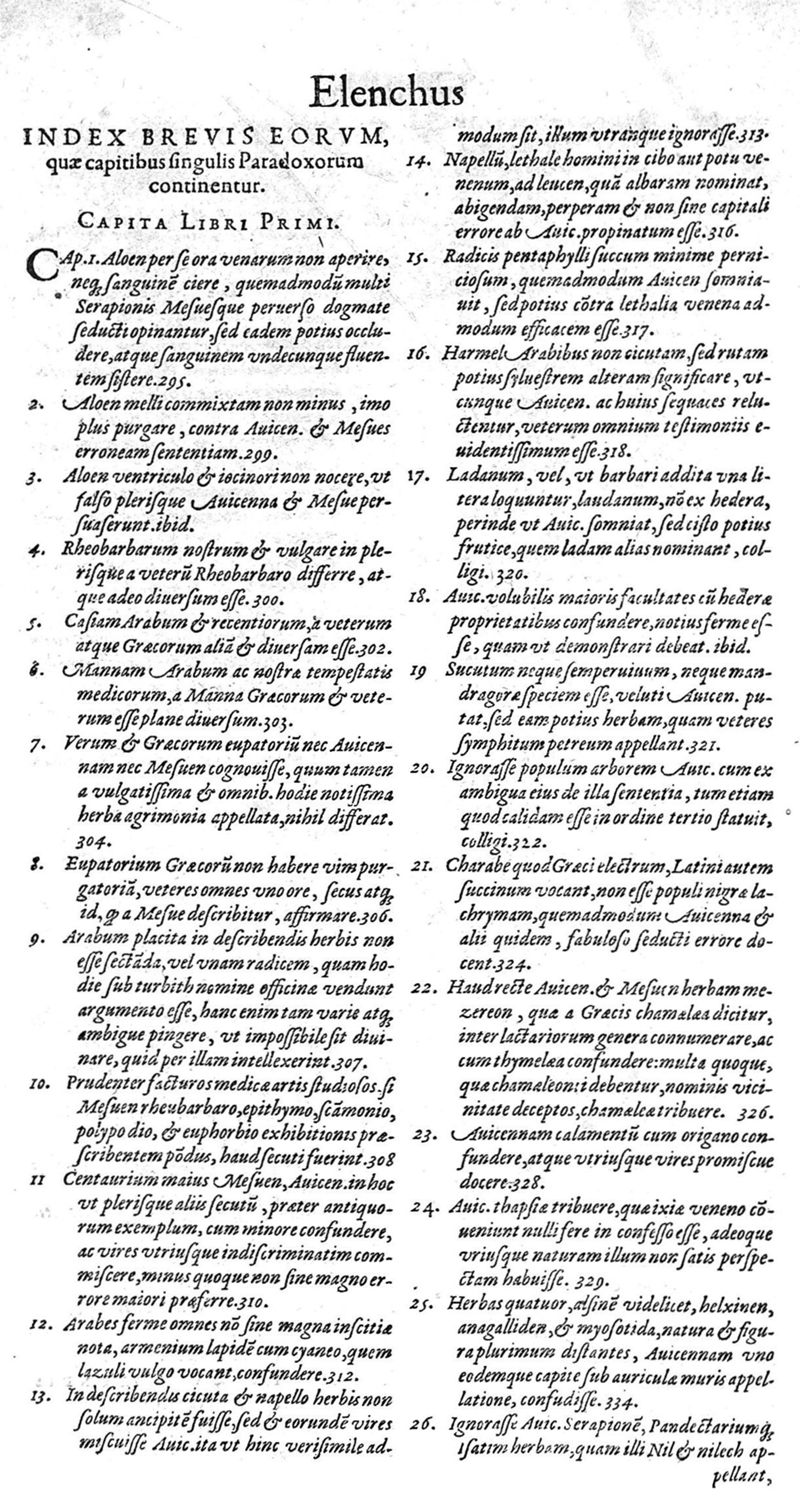 Elenchus
INDEX BREVIS EORVM,
quæ capitibus singulis Paradoxorum
continentur.
CAPITA LIBRI PRIMI.
CAp.1. Aloen per se ora venarum non aperire,
neq; sanguinē ciere, quemadmodū multi
Serapionis Mesuesque peruerso dogmate
seducti opinantur, sed eadem potius occlu-
dere, atque sanguinem vndecunque fluen-
tem sistere.295.
2. Aloen melli commixtam non minus, imo
plus purgare, contra Auicen. & Mesues
erroneam sententiam.299.
3. Aloen ventriculo & iocinori non nocere, vt
falso plerisque Auicenna & Mesue per-
suaserunt.ibid.
4. Rheobarbarum nostrum & vulgare in ple-
risque a veterū Rheobarbaro differre, at-
que adeo diuersum esse. 300.
5. Casiam Arabum & recentiorum, a veterum
atque Græcorum aliā & diuersam esse.302.
6. Mannam Arabum ac nostræ tempestatis
medicorum, a Manna Græcorum & vete-
rum esse plane diuersum.303.
7. Verum & Græcorum eupatoriū nec Auicen-
nam nec Mesuen cognouisse, quum tamen
a vulgatissima & omnib. hodie notissima
herba agrimonia appellata, nihil differat.
304.
8. Eupatorium Græcorū non habere vim pur-
gatoriā, veteres omnes vno ore, secus atq;
id, q̄ a Mesue describitur, affirmare.306.
9. Arabum placita in describendis herbis non
esse sectāda, vel vnam radicem, quam ho-
die sub turbith nomine officinæ vendunt
argumento esse, hanc enim tam varie atq;
ambigue pingere, vt impossibile sit diui-
nare, quid per illam intellexerint.307.
10. Prudenter facturos medicæ artis studiosos, si
Mesuen rheubarbaro, epithymo, scāmonio,
polypodio, & euphorbio exhibitionis præ-
scribentem pōdus, haud secuti fuerint.308
11 Centaurium maius Mesuen, Auicen. in hoc
vt plerisque aliis secutū, præter antiquo-
rum exemplum, cum minore confundere,
ac vires vtriusque indiscriminatim com-
miscere, minus quoque non sine magno er-
rore maiori præferre.310.
12. Arabes ferme omnes nō sine magna inscitiæ
nota, armenium lapidē cum cyaneo, quem
lazuli vulgo vocant, confundere.312.
13. In describendis cicuta & napello herbis non
solum ancipitē fuisse, sed & eorundē vires
miscuisse Auic. ita vt hinc verisimile ad-
modum sit, illum vtranque ignorasse.313.
14. Napellū, lethale homini in cibo aut potu ve-
nenum, ad leucen, quā albaram nominat,
abigendam, perperam & non sine capitali
errore ab Auic. propinatum esse.316.
15. Radicis pentaphylli succum minime perni-
ciosum, quemadmodum Auicen somnia-
uit, sed potius cōtra lethalia venena ad-
modum efficacem esse.317.
16. Harmel Arabibus non cicutam, sed rutam
potius syluestrem alteram significare, vt-
cunque Auicen. ac huius sequaces relu-
ctentur, veterum omnium testimoniis e-
uidentissimum esse.318.
17. Ladanum, vel, vt barbari addita vna li-
tera loquuntur, laudanum, nō ex hedera,
perinde vt Auic. somniat, sed cisto potius
frutice, quem ladam alias nominant, col-
ligi. 320.
18. Auic. volubilis maioris facultates cū hederæ
proprietatibus confundere, notius ferme es-
se, quam vt demonstrari debeat. ibid.
19 Sucutum neque semperuiuum, neque man-
dragoræ speciem esse, veluti Auicen. pu-
tat, sed eam potius herbam, quam veteres
symphitum petreum appellant.321.
20. Ignorasse populum arborem Auic. cum ex
ambigua eius de illa sententia, tum etiam
quod calidam esse in ordine tertio statuit,
colligi.322.
21. Charabe quod Græci electrum, Latini autem
succinum vocant, non esse populi nigræ la-
chrymam, quemadmodum Auicenna &
alii quidem, fabuloso seducti errore do-
cent.324.
22. Haud recte Auicen. & Mesuen herbam me-
zereon, quæ a Græcis chamælea dicitur,
inter lactariorum genera connumerare, ac
cum thymelæa confundere: multa quoque,
quæ chamæleonti debentur, nominis vici-
nitate deceptos, chamæleæ tribuere. 326.
23. Auicennam calamentū cum origano con-
fundere, atque vtriusque vires promiscue
docere.328.
24. Auic. thapsiæ tribuere, quæ ixiæ veneno cō-
ueniunt nulli fere in confesso esse, adeoque
vriusque naturam illum non satis perspe-
ctam habuisse. 329.
25. Herbas quatuor, alsinē videlicet, helxinen,
anagalliden, & myosotida, natura & figu-
ra plurimum distantes, Auicennam vno
eodemque capite sub auriculæ muris appel-
latione, confudisse. 334.
26. Ignorasse Auic. Serapionē, Pandectariumq;
isatim herbam, quam illi Nil & nilech ap-
pellant,